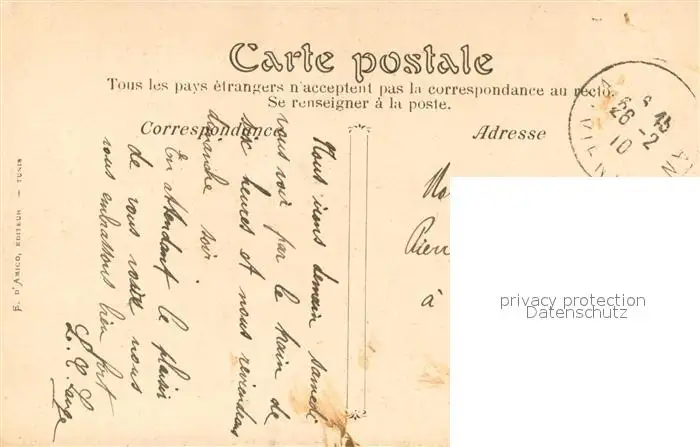 Carte postale
Tous les pays étrangers n'acceptent pas la correspondance au recto.
Se renseigner à la poste.
Correspondance
Adresse
Nous irons demain samedi
vous voir par le train de
six heures et nous reviendrons
dimanche soir
En attendant le plaisir
de vous voir nous
vous embrassons bien fort
F. D'AMICO, EDITEUR — TUNIS
45
26-2
10
Pierr
à
privacy protection
Datenschutz